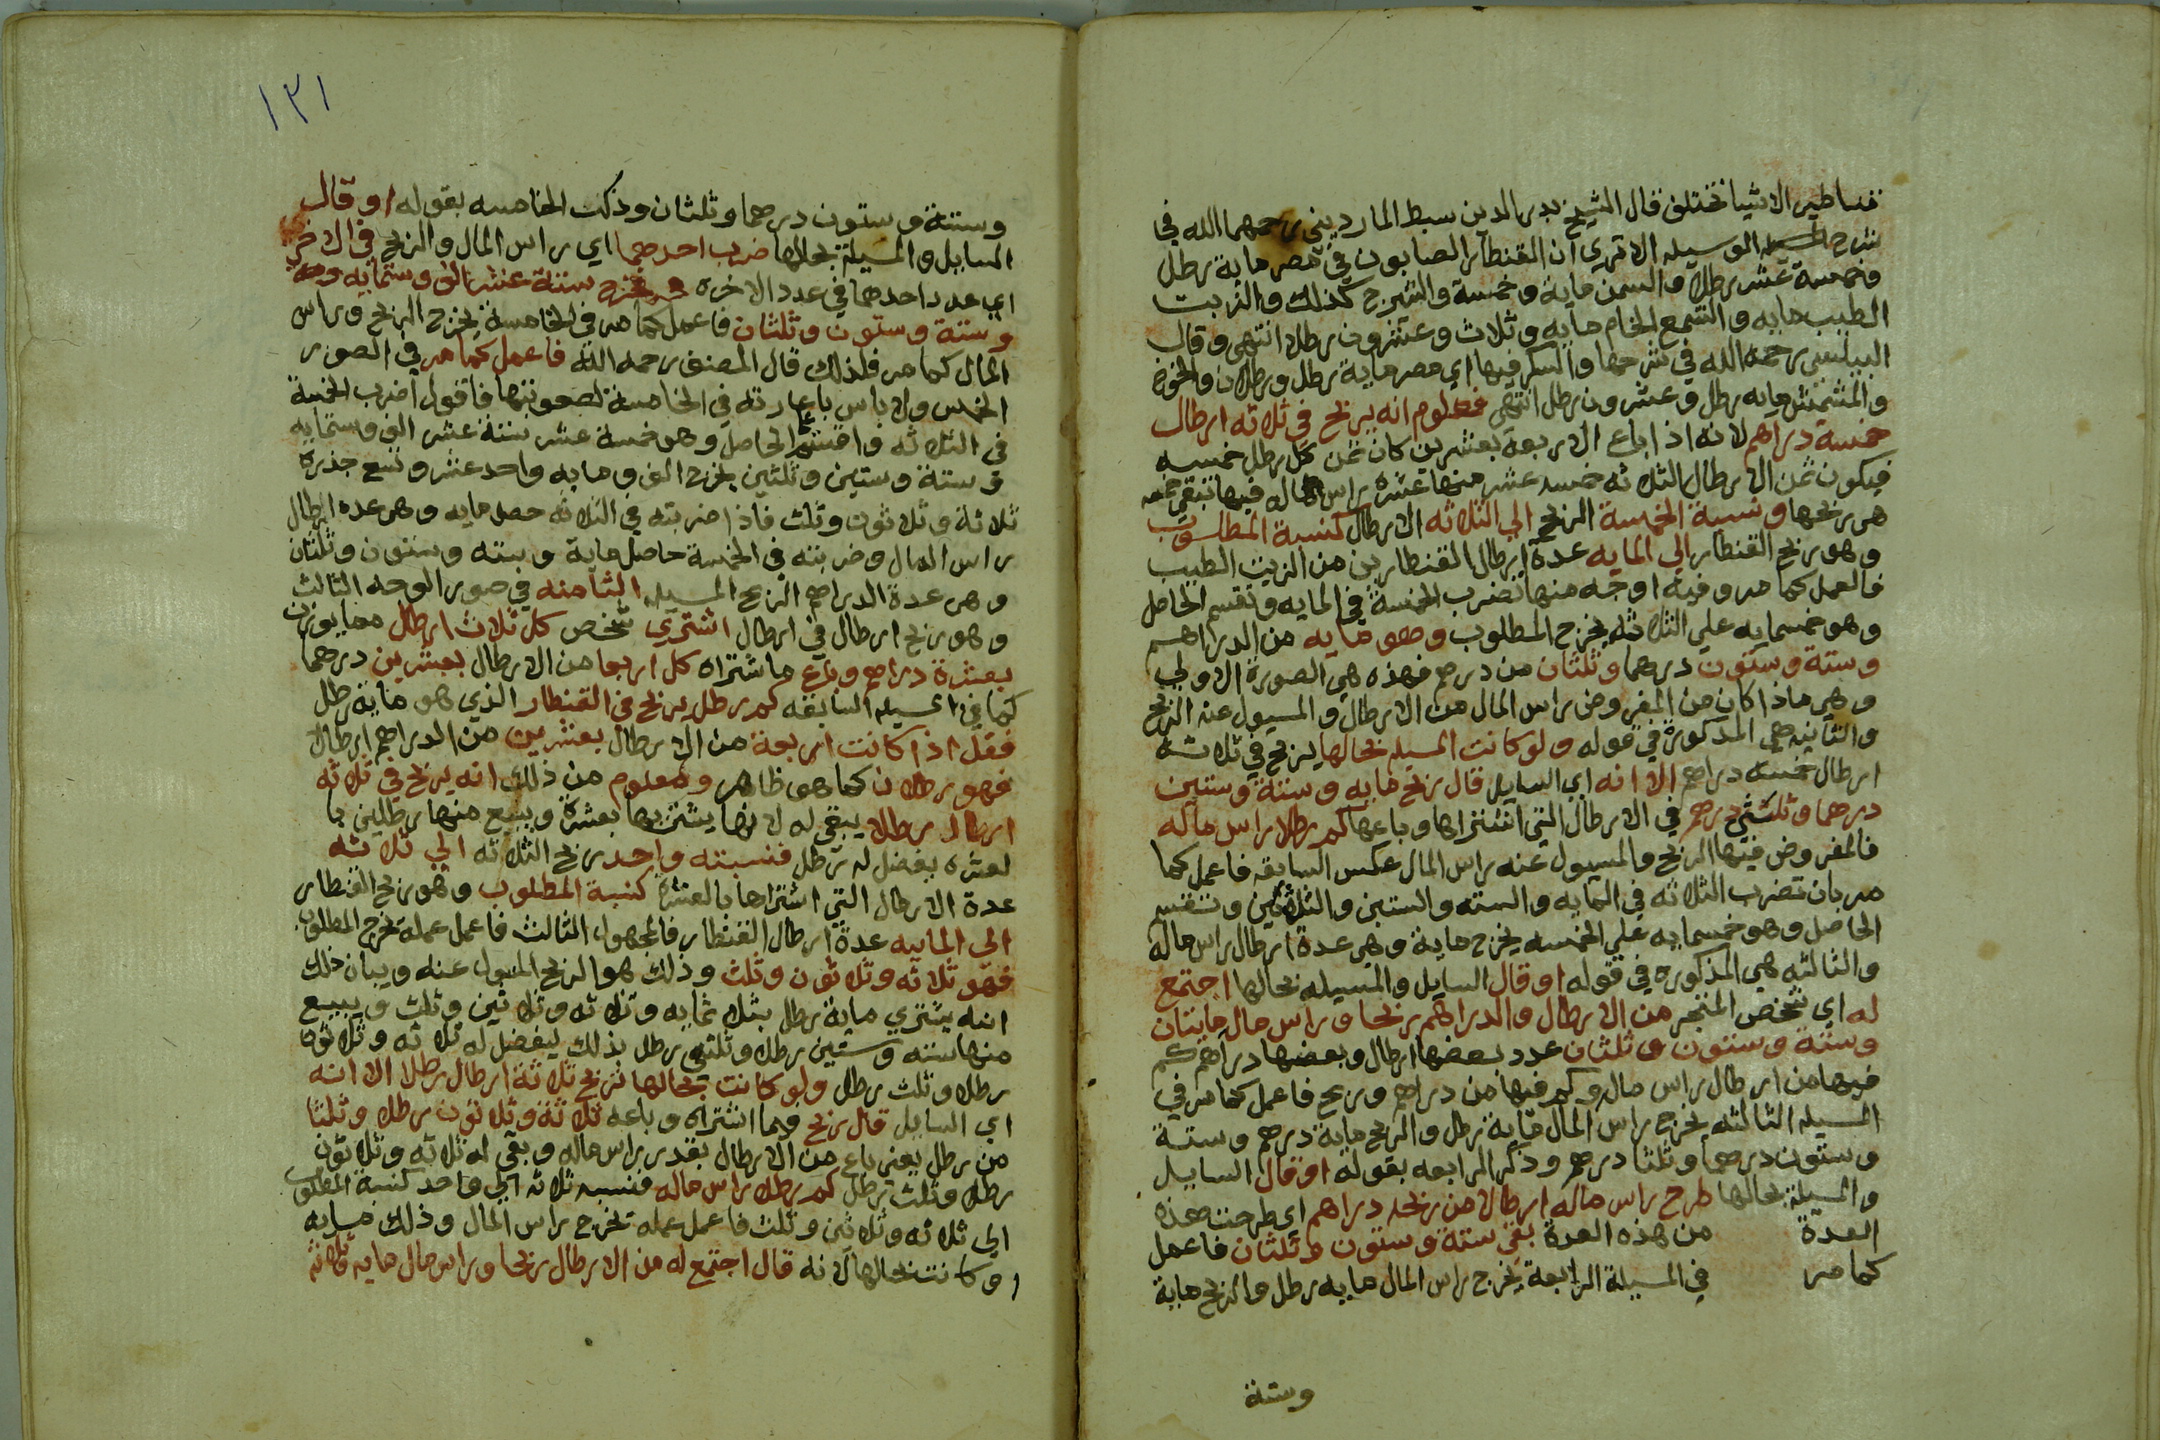 قناطير الاشيا تختلف قال الشيخ بدر الدين سبط المارديني رحمهما الله في
شرح الوسيله الا تري ان القنطار الصابون في مصر ماية رطل
وخمسة عشر رطلا والسمن ماية وخمسة والشيرج كذلك والزيت
الطيب مايه والشمع الخام مايه وثلاث وعشرون رطلا انتهي وقال
البلبيسي رحمه الله في شرحها والسكر فيها اي مصر ماية رطل ورطلان والخوخ
والمشمش مايه رطل وعشرون رطل انتهي فمعلوم انه يربح في ثلاثه ارطال
خمسة دراهم لانه اذا باع الاربعة بعشرين كان ثمن كل رطل خمسه
فيكون ثمن الارطال الثلاثه خمسه عشر منها عشره راس ماله فيها تبقي خمسه
هي ربحها ونسبة الخمسة الربح الي الثلاثه الارطال كنسبة المطلوب
وهو ربح القنطار الي المايه عدة ارطال القنطار من الزيت الطيب
فالعمل كما مر وفيه اوجه منها تضرب الخمسة في المايه وتقسم الحاصل
وهو خمسمايه علي الثلاثه يخرج المطلوب وهو مايه من الدراهم
وستة وستون درهما وثلثان من درهم فهذه هي الصورة الاولي
وهي ماذا كان من المفروض راس المال من الارطال والمسيول عنه الربح
والثانيه هي المذكورة في قوله ولو كانت المسيله بحالها يربح في ثلاثة
ارطال خمسه دراهم الا انه اي السايل قال ربح مايه وستة وستين
درهما وثلثي درهم في الارطال التي اشتراها وباعها كم رطلا راس ماله
فالمفروض فيها الربح والمسيول عنه راس المال عكس السابقه فاعمل كما
مر بان تضرب الثلاثه في المايه والسته والستين والثلثين وتقسم
الحاصل وهو خمسمايه علي الخمسه يخرج ماية وهي عدة ارطال راس ماله
والثالثه هي المذكوره في قوله او قال السايل والمسيله بحالها اجتمع
له اي شخص المتجر من الارطال والدراهم ربحا وراس مال مايتان
وستة وستون وثلثان عدد بعضها ارطال وبعضها دراهم كم
فيها من ارطال راس مال وكم فيها من دراهم وربح فاعمل كما مر في
المسيله الثالثه يخرج راس المال ماية رطل والربح ماية درهم وستة
وستون درهما وثلثا درهم وذكر الرابعه بقوله او قال السايل
والمسيلة بحالها طرح راس ماله ارطالا من ربحه دراهم اي طرحت هذه
العدة من هذه العدة بقي ستة وستون وثلثان فاعمل
كما مر في المسيلة الرابعة يخرج راس المال مايه رطل والربح ماية
وستة
١٣١
وستة وستون درهما وثلثان وذكر الخامسه بقوله او قال
السايل والمسيلة بحالها ضرب احدهما اي راس المال والربح في الاخر
اي عدد احدهما في عدد الاخره فخرج ستة عشر الف وستمايه
وستة وستون وثلثان فاعمل كما مر في الخامسة يخرج الربح وراس
المال كما مر فلذلك قال المصنف رحمه الله فاعمل كما مر في الصور
الخمس ولا باس باعادته في الخامسة لصعوبتها فاقول اضرب الخمسة
في الثلاثه واقسم الحاصل وهو خمسة عشر ستة عشر الف وستمايه
وستة وستين وثلثين يخرج الف ومايه واحد عشر وتسع جذره
ثلاثة وثلاثون وثلث فاذا ضربته في الثلاثه حصل مايه وهو عدة ارطال
راس المال وضربته في الخمسة حاصل ماية وسته وستون وثلثان
وهي عدة الدراهم الربح المسيله الثامنه في صور الوجه الثالث
وهو ربح ارطال في ارطال اشتري شخص كل ثلاث ارطال مما يوزن
بعشرة دراهم وباع ما شتراه كل اربعا من الارطال بعشرين درهما
كما في المسيله السابقه كم رطل يربح في القنطار الذي هو ماية رطل
فقل اذا كانت اربعة من الارطال بعشرين من الدراهم ارطال
فهو رطلان كما هو ظاهر ومعلوم من ذلك انه يربح في ثلاثه
ارطال رطلا يبقي له لانها يشتريها بعشرة ويبيع منها رطلين با
لعشره يفضل له رطل فنسبته واحد ربح الثلاثه الي ثلاثه
عدة الارطال التي اشتراها بالعشرة كنسبة المطلوب وهو ربح القنطار
الي المايه عدة ارطال القنطار فالمجهول الثالث فاعمل عمله تخرج المطلوب
فهو ثلاثه وثلاثون وثلث وذلك هو الربح المسيول عنه وبيان ذلك
انه يشتري ماية رطل بثلاثمايه وثلاثه وثلاثين وثلث ويبيع
منها سته وستين رطلا وثلثي رطل بذلك ليفضل له ثلاثه وثلاثون
رطلا وثلث رطل ولو كانت بحالها تربح ثلاثة ارطال رطلا الا انه
اي السايل قال ربح وما اشتراه وباعه ثلاثة وثلاثون رطلا وثلثا
من رطل يعني باع من الارطال بقدر راس ماله وبقي له ثلاثه وثلاثون
رطلا وثلث رطل كم رطلا راس ماله فنسبه ثلاثه الي واحد كنسبة المطلوب
الي ثلاثه وثلاثين وثلث فاعمل عمله تخرج راس المال وذلك مايه
او كانت بحالها لانه قال اجتمع له من الارطال ربحا وراس مال مايه ثلاثه